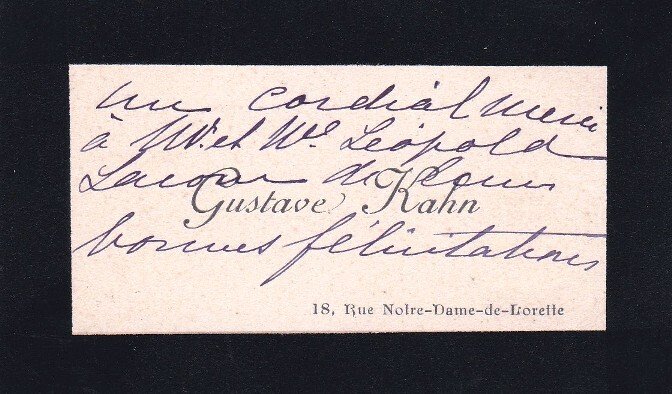 un cordial merci
à Mr. et Me Léopold
Lacour de leurs
Gustave Kahn
bonnes félicitations
18, Rue Notre-Dame-de-Lorette